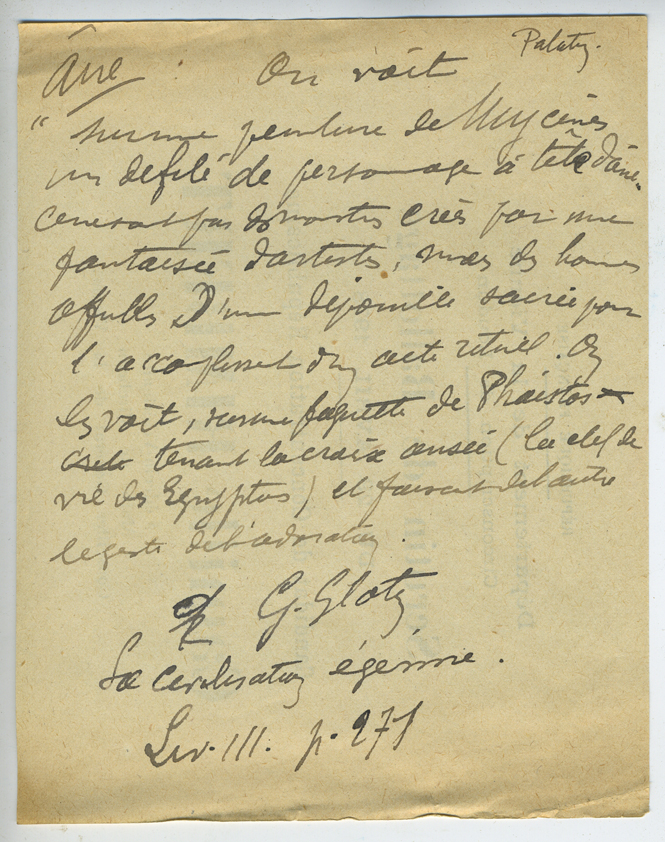 Palatin.
Âne On voit
" sur une peinture de Mycènes
un défilé de personnage à tête d'âne.
ce ne sont pas des monstres créés par une
fantaisie d'artistes, mais des hommes
affublés D'une dépouille sacrée pour
l'accomplissement d'un acte rituel. On
les voit, sur une plaquette de Phaistos
tenant la croix ansée (la clef de
vie des Egyptiens) et faisant de l'autre
le geste de l'adoration.
cf G. Glotz
La civilisation égéenne.
Liv. III. p. 271